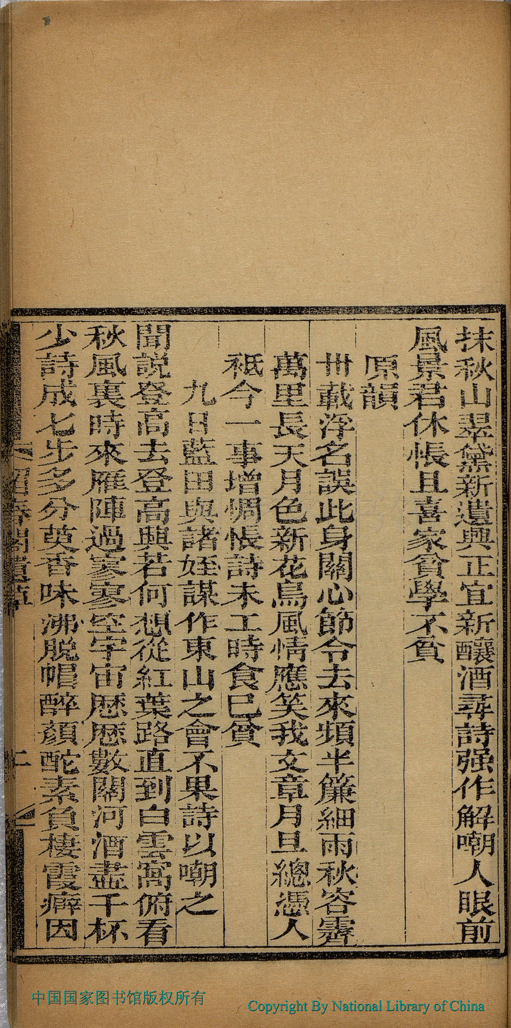 抹秋山翠黛新遺興正宜新釀酒尋詩强作解嘲人眼前
風景君休悵且喜家貧學不貧
原韻
卅載浮名誤此身關心節令去來頻半簾細雨秋容霽
萬里長天月色新花鳥風情應笑我文章月旦總憑人
袛今一事增惆悵詩未工時食已貧
九日藍田與諸姪謀作東山之會不果詩以嘲之
聞説登高去登高興若何想從紅葉路直到白雲窩俯看
秋風裏時來雁陣過寥寥空宇宙歷歷數關河酒盡千杯
少詩成七步多分萸香味沸脱帽醉顔酡素負棲霞癖因
香閣遺草
二
中国国家图书馆版权所有
Copyright By National Library of China